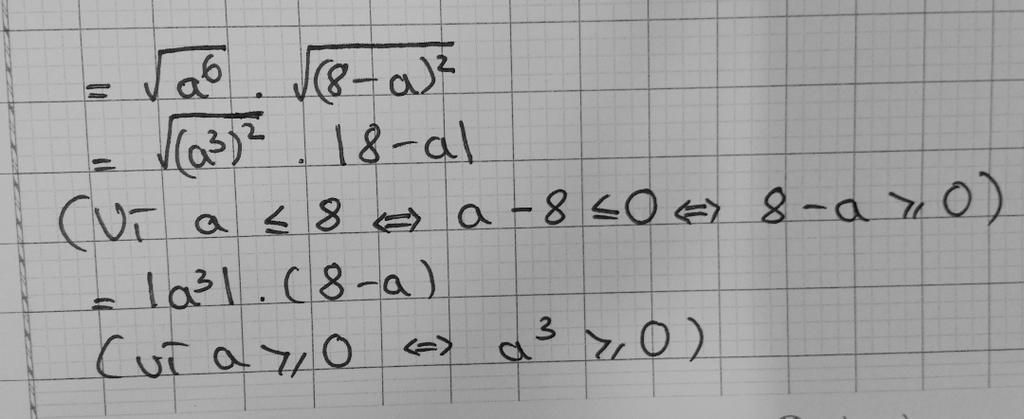 = √a⁶ . √(8-a)²
= √(a³)² . |8-a|
(Vì a ≤ 8 ⇔ a-8 ≤ 0 ⇔ 8-a ≥ 0)
= |a³| . (8-a)
(vì a ≥ 0 ⇔ a³ ≥ 0)